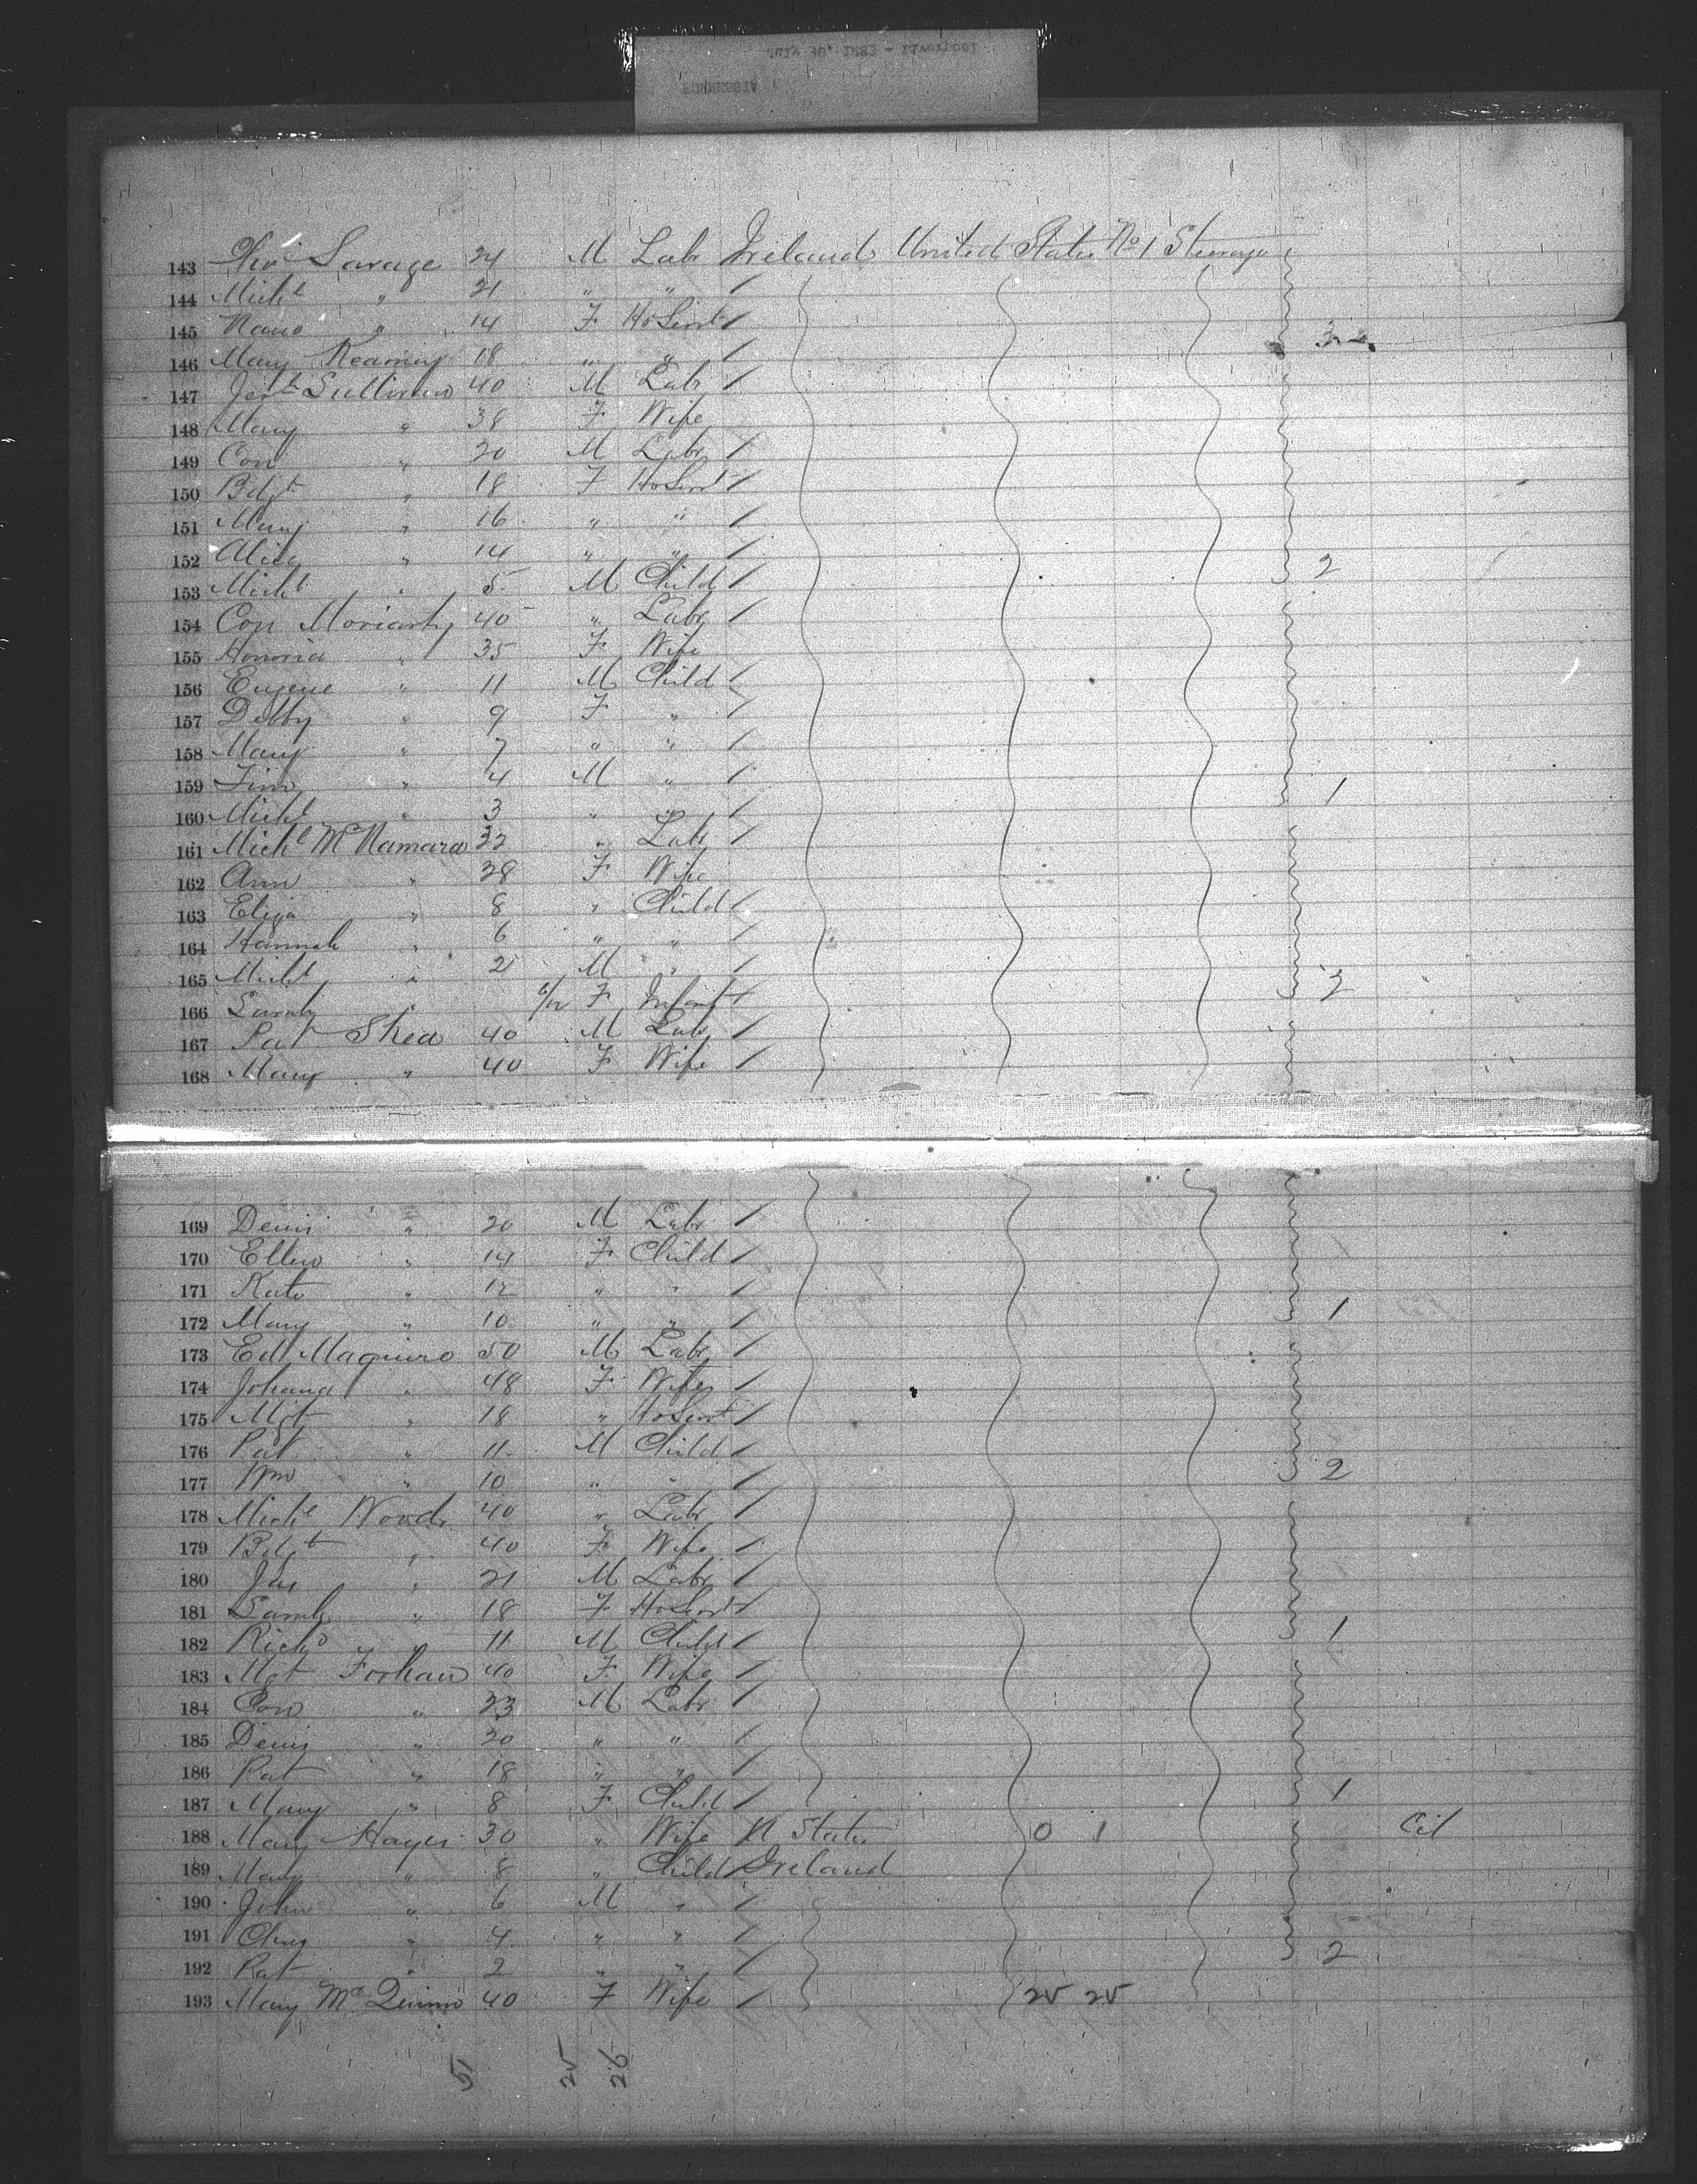 July 30, 1883 - Liverpool
FURNESSIA
143 Savage 24 M Labr Ireland United States No 1 Steerage
144 Michl " 21 " " /
145 " 14 F HoServt /
146 Mary 18 " " /
147 Sullivan 40 M Labr /
148 Mary " 38 F Wife
149 Con " 20 M Labr /
150 Bdgt " 18 F HoServt /
151 Mary " 16 " " /
152 " 14 " " / 2
153 Michl " 5 M Child /
154 Con Moriarty 40 " Labr /
155 Honoria " 35 F Wife
156 Eugene " 11 M Child /
157 Debby " 9 F " /
158 Mary " 7 " " /
159 Tim " 4 M " / 1
160 Michl " 3 " " /
161 Michl McNamara 32 " Labr /
162 Ann " 28 F Wife
163 Eliza " 8 " Child /
164 Hannah " 6 " " /
165 Michl " 2 M " / 3
166 " 6/12 F Infant /
167 Pat Shea 40 M Labr /
168 Mary " 40 F Wife /
169 Denis " 20 M Labr /
170 Ellen " 14 F Child /
171 Kate " 12 " " /
172 Mary " 10 " " / 1
173 Ed Maguire 50 M Labr /
174 Johana " 48 F Wife /
175 Mgt " 18 " HoServt /
176 Pat " 11 M Child /
177 Wm " 10 " " / 2
178 Michl Woods 40 " Labr /
179 Bdgt " 40 F Wife /
180 Jas " 21 M Labr /
181 " 18 F HoServt /
182 Richd " 11 M Child / 1
183 Mgt Forhan 40 F Wife /
184 Con " 23 M Labr /
185 Denis " 20 " " /
186 Pat " 18 " " /
187 Mary " 8 F Child / 1
188 Mary Hayes 30 " Wife U States 0 1 Cit
189 Mary " 8 " Child Ireland
190 John " 6 M " /
191 " 4 " " / 2
192 Pat " 2 " " /
193 Mary McQuinn 40 F Wife / 25 25
51 25 26